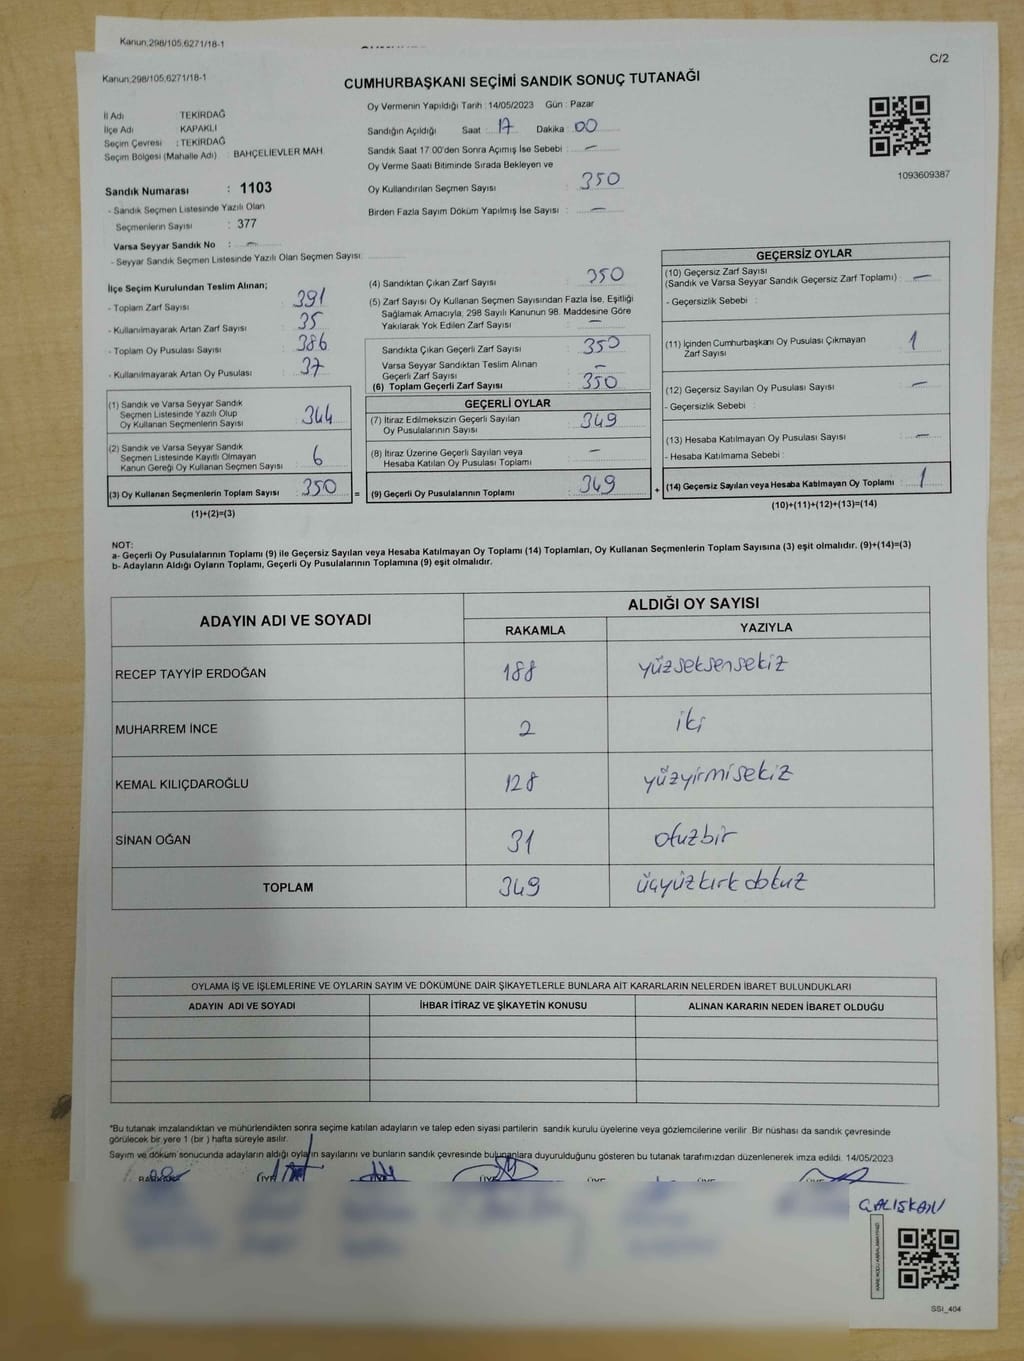 Kanun,298/105,6271/18-1
C/2
Kanun,298/105,6271/18-1
CUMHURBAŞKANI SEÇİMİ SANDIK SONUÇ TUTANAĞI
İl Adı TEKİRDAĞ
İlçe Adı KAPAKLI
Seçim Çevresi : TEKİRDAĞ
Seçim Bölgesi (Mahalle Adı) : BAHÇELİEVLER MAH.
Sandık Numarası : 1103
- Sandık Seçmen Listesinde Yazılı Olan
Seçmenlerin Sayısı : 377
Varsa Seyyar Sandık No : —
- Seyyar Sandık Seçmen Listesinde Yazılı Olan Seçmen Sayısı
Oy Vermenin Yapıldığı Tarih : 14/05/2023 Gün : Pazar
Sandığın Açıldığı Saat : 17 Dakika : 00
Sandık Saat 17:00'den Sonra Açımış İse Sebebi : —
Oy Verme Saati Bitiminde Sırada Bekleyen ve
Oy Kullandırılan Seçmen Sayısı : 350
Birden Fazla Sayım Döküm Yapılmış İse Sayısı : —
1093609387
İlçe Seçim Kurulundan Teslim Alınan;
- Toplam Zarf Sayısı : 391
- Kullanılmayarak Artan Zarf Sayısı : 35
- Toplam Oy Pusulası Sayısı : 386
- Kullanılmayarak Artan Oy Pusulası : 37
(1) Sandık ve Varsa Seyyar Sandık
Seçmen Listesinde Yazılı Olup
Oy Kullanan Seçmenlerin Sayısı : 344
(2) Sandık ve Varsa Seyyar Sandık
Seçmen Listesinde Kayıtlı Olmayan
Kanun Gereği Oy Kullanan Seçmen Sayısı : 6
(3) Oy Kullanan Seçmenlerin Toplam Sayısı : 350
(1)+(2)=(3)
(4) Sandıktan Çıkan Zarf Sayısı : 350
(5) Zarf Sayısı Oy Kullanan Seçmen Sayısından Fazla İse, Eşitliği
Sağlamak Amacıyla, 298 Sayılı Kanunun 98. Maddesine Göre
Yakılarak Yok Edilen Zarf Sayısı : —
Sandıkta Çıkan Geçerli Zarf Sayısı : 350
Varsa Seyyar Sandıktan Teslim Alınan
Geçerli Zarf Sayısı : —
(6) Toplam Geçerli Zarf Sayısı : 350
GEÇERLİ OYLAR
(7) İtiraz Edilmeksizin Geçerli Sayılan
Oy Pusulalarının Sayısı : 349
(8) İtiraz Üzerine Geçerli Sayılan veya
Hesaba Katılan Oy Pusulası Toplamı : —
= (9) Geçerli Oy Pusulalarının Toplamı : 349 +
GEÇERSİZ OYLAR
(10) Geçersiz Zarf Sayısı
(Sandık ve Varsa Seyyar Sandık Geçersiz Zarf Toplamı) : —
- Geçersizlik Sebebi :
(11) İçinden Cumhurbaşkanı Oy Pusulası Çıkmayan
Zarf Sayısı : 1
(12) Geçersiz Sayılan Oy Pusulası Sayısı : —
- Geçersizlik Sebebi :
(13) Hesaba Katılmayan Oy Pusulası Sayısı : —
- Hesaba Katılmama Sebebi :
(14) Geçersiz Sayılan veya Hesaba Katılmayan Oy Toplamı : 1
(10)+(11)+(12)+(13)=(14)
NOT:
a- Geçerli Oy Pusulalarının Toplamı (9) ile Geçersiz Sayılan veya Hesaba Katılmayan Oy Toplamı (14) Toplamları, Oy Kullanan Seçmenlerin Toplam Sayısına (3) eşit olmalıdır. (9)+(14)=(3)
b- Adayların Aldığı Oyların Toplamı, Geçerli Oy Pusulalarının Toplamına (9) eşit olmalıdır.
ADAYIN ADI VE SOYADI ALDIĞI OY SAYISI
RAKAMLA YAZIYLA
RECEP TAYYİP ERDOĞAN 188 yüzseksensekiz
MUHARREM İNCE 2 iki
KEMAL KILIÇDAROĞLU 128 yüzyirmisekiz
SİNAN OĞAN 31 otuzbir
TOPLAM 349 üçyüzkırkdokuz
OYLAMA İŞ VE İŞLEMLERİNE VE OYLARIN SAYIM VE DÖKÜMÜNE DAİR ŞİKAYETLERLE BUNLARA AİT KARARLARIN NELERDEN İBARET BULUNDUKLARI
ADAYIN ADI VE SOYADI İHBAR İTİRAZ VE ŞİKAYETİN KONUSU ALINAN KARARIN NEDEN İBARET OLDUĞU
*Bu tutanak imzalandıktan ve mühürlendikten sonra seçime katılan adayların ve talep eden siyasi partilerin sandık kurulu üyelerine veya gözlemcilerine verilir. Bir nüshası da sandık çevresinde
görülecek bir yere 1 (bir ) hafta süreyle asılır.
Sayım ve döküm sonucunda adayların aldığı oyların sayılarını ve bunların sandık çevresinde bulunanlara duyurulduğunu gösteren bu tutanak tarafımızdan düzenlenerek imza edildi. 14/05/2023
BAŞKAN ÜYE ÜYE ÜYE ÜYE
ÇALIŞKAN
SSI_404